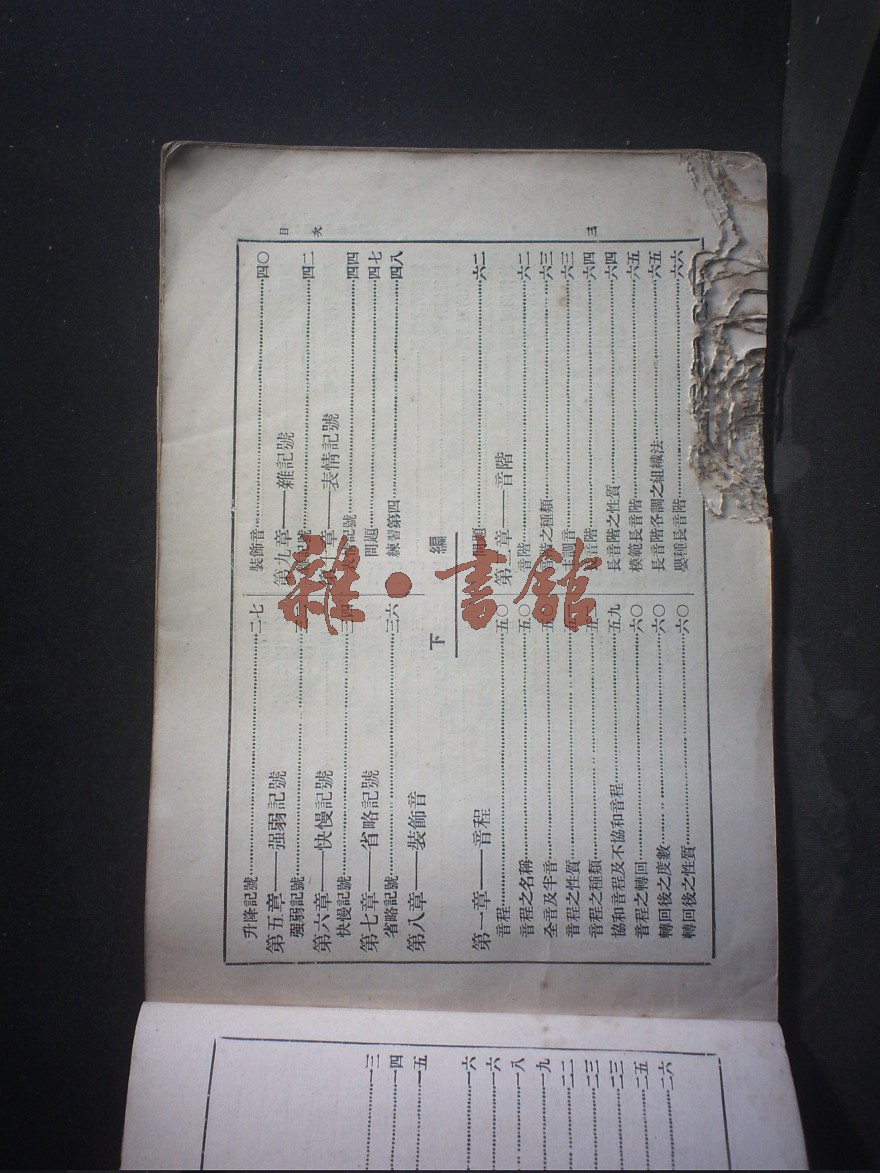 目次
三
升降記號……二七
第五章——强弱記號
强弱記號……
第六章——快慢記號
快慢記號……三四
第七章——省略記號
省略記號……三六
第八章——裝飾音
裝飾音……四〇
第九章——雜記號
記號……四二
十章——表情記號
記號……四四
問題……四七
練習第四……四八
下編
第一章——音程
音程……五〇
音程之名稱……五〇
全音及半音……五
音程之性質……
音程之種類……五
協和音程及不協和音程……五九
音程之轉回……六〇
轉回後之度數……六〇
轉回後之性質……六〇
問題……六二
第二章——音階
音階……六二
音階之種類……六三
主調音……六三
音階……六四
長音階之性質……六四
模範長音階……六五
長音階各調之組織法……六五
嬰種長音階……六六
書館
一三
一四
一五
一六
一六
一八
一九
二二
二三
二三
二五
二六